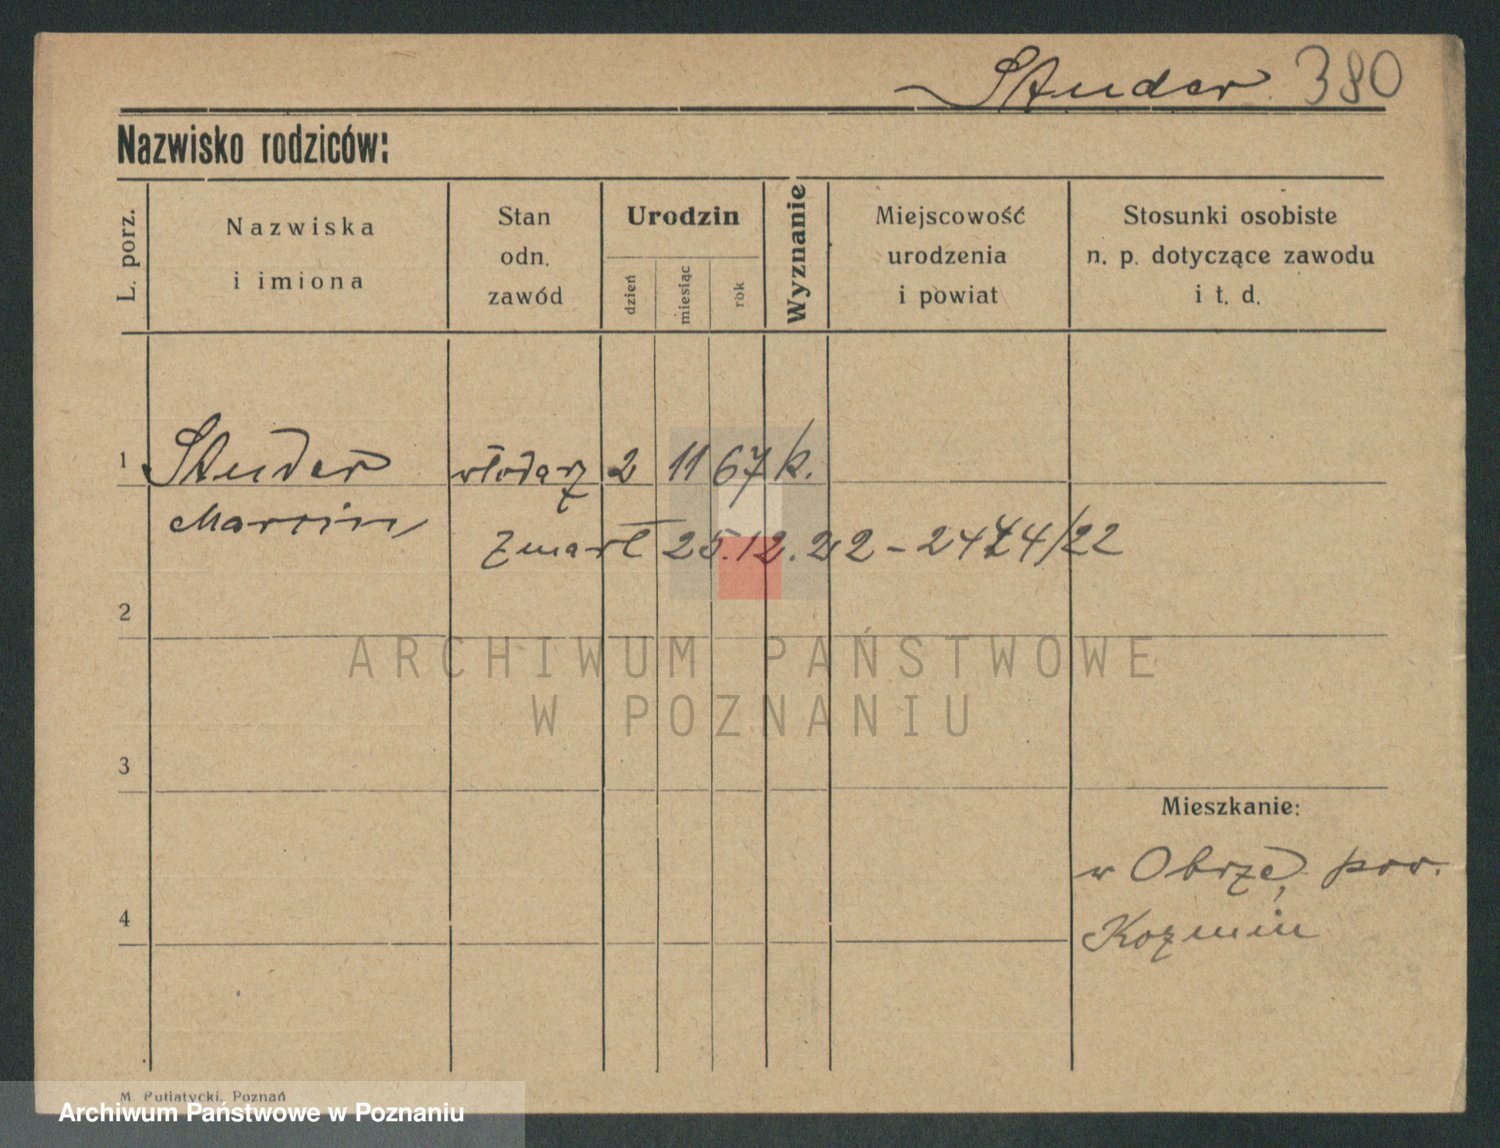 Studer 380
Nazwisko rodziców:
L. porz.
Nazwiska
i imiona
Stan
odn.
zawód
Urodzin
dzień
miesiąc
rok
Wyznanie
Miejscowość
urodzenia
i powiat
Stosunki osobiste
n. p. dotyczące zawodu
i t. d.
1 Studer włodarz 2 11 67 k.
Marcin
zmarł 25.12.22 - 2474/22
2
ARCHIWUM PAŃSTWOWE
W POZNANIU
3
Mieszkanie:
w Obrze, pow.
4
Kozmin
M. Putiatycki, Poznań
Archiwum Państwowe w Poznaniu